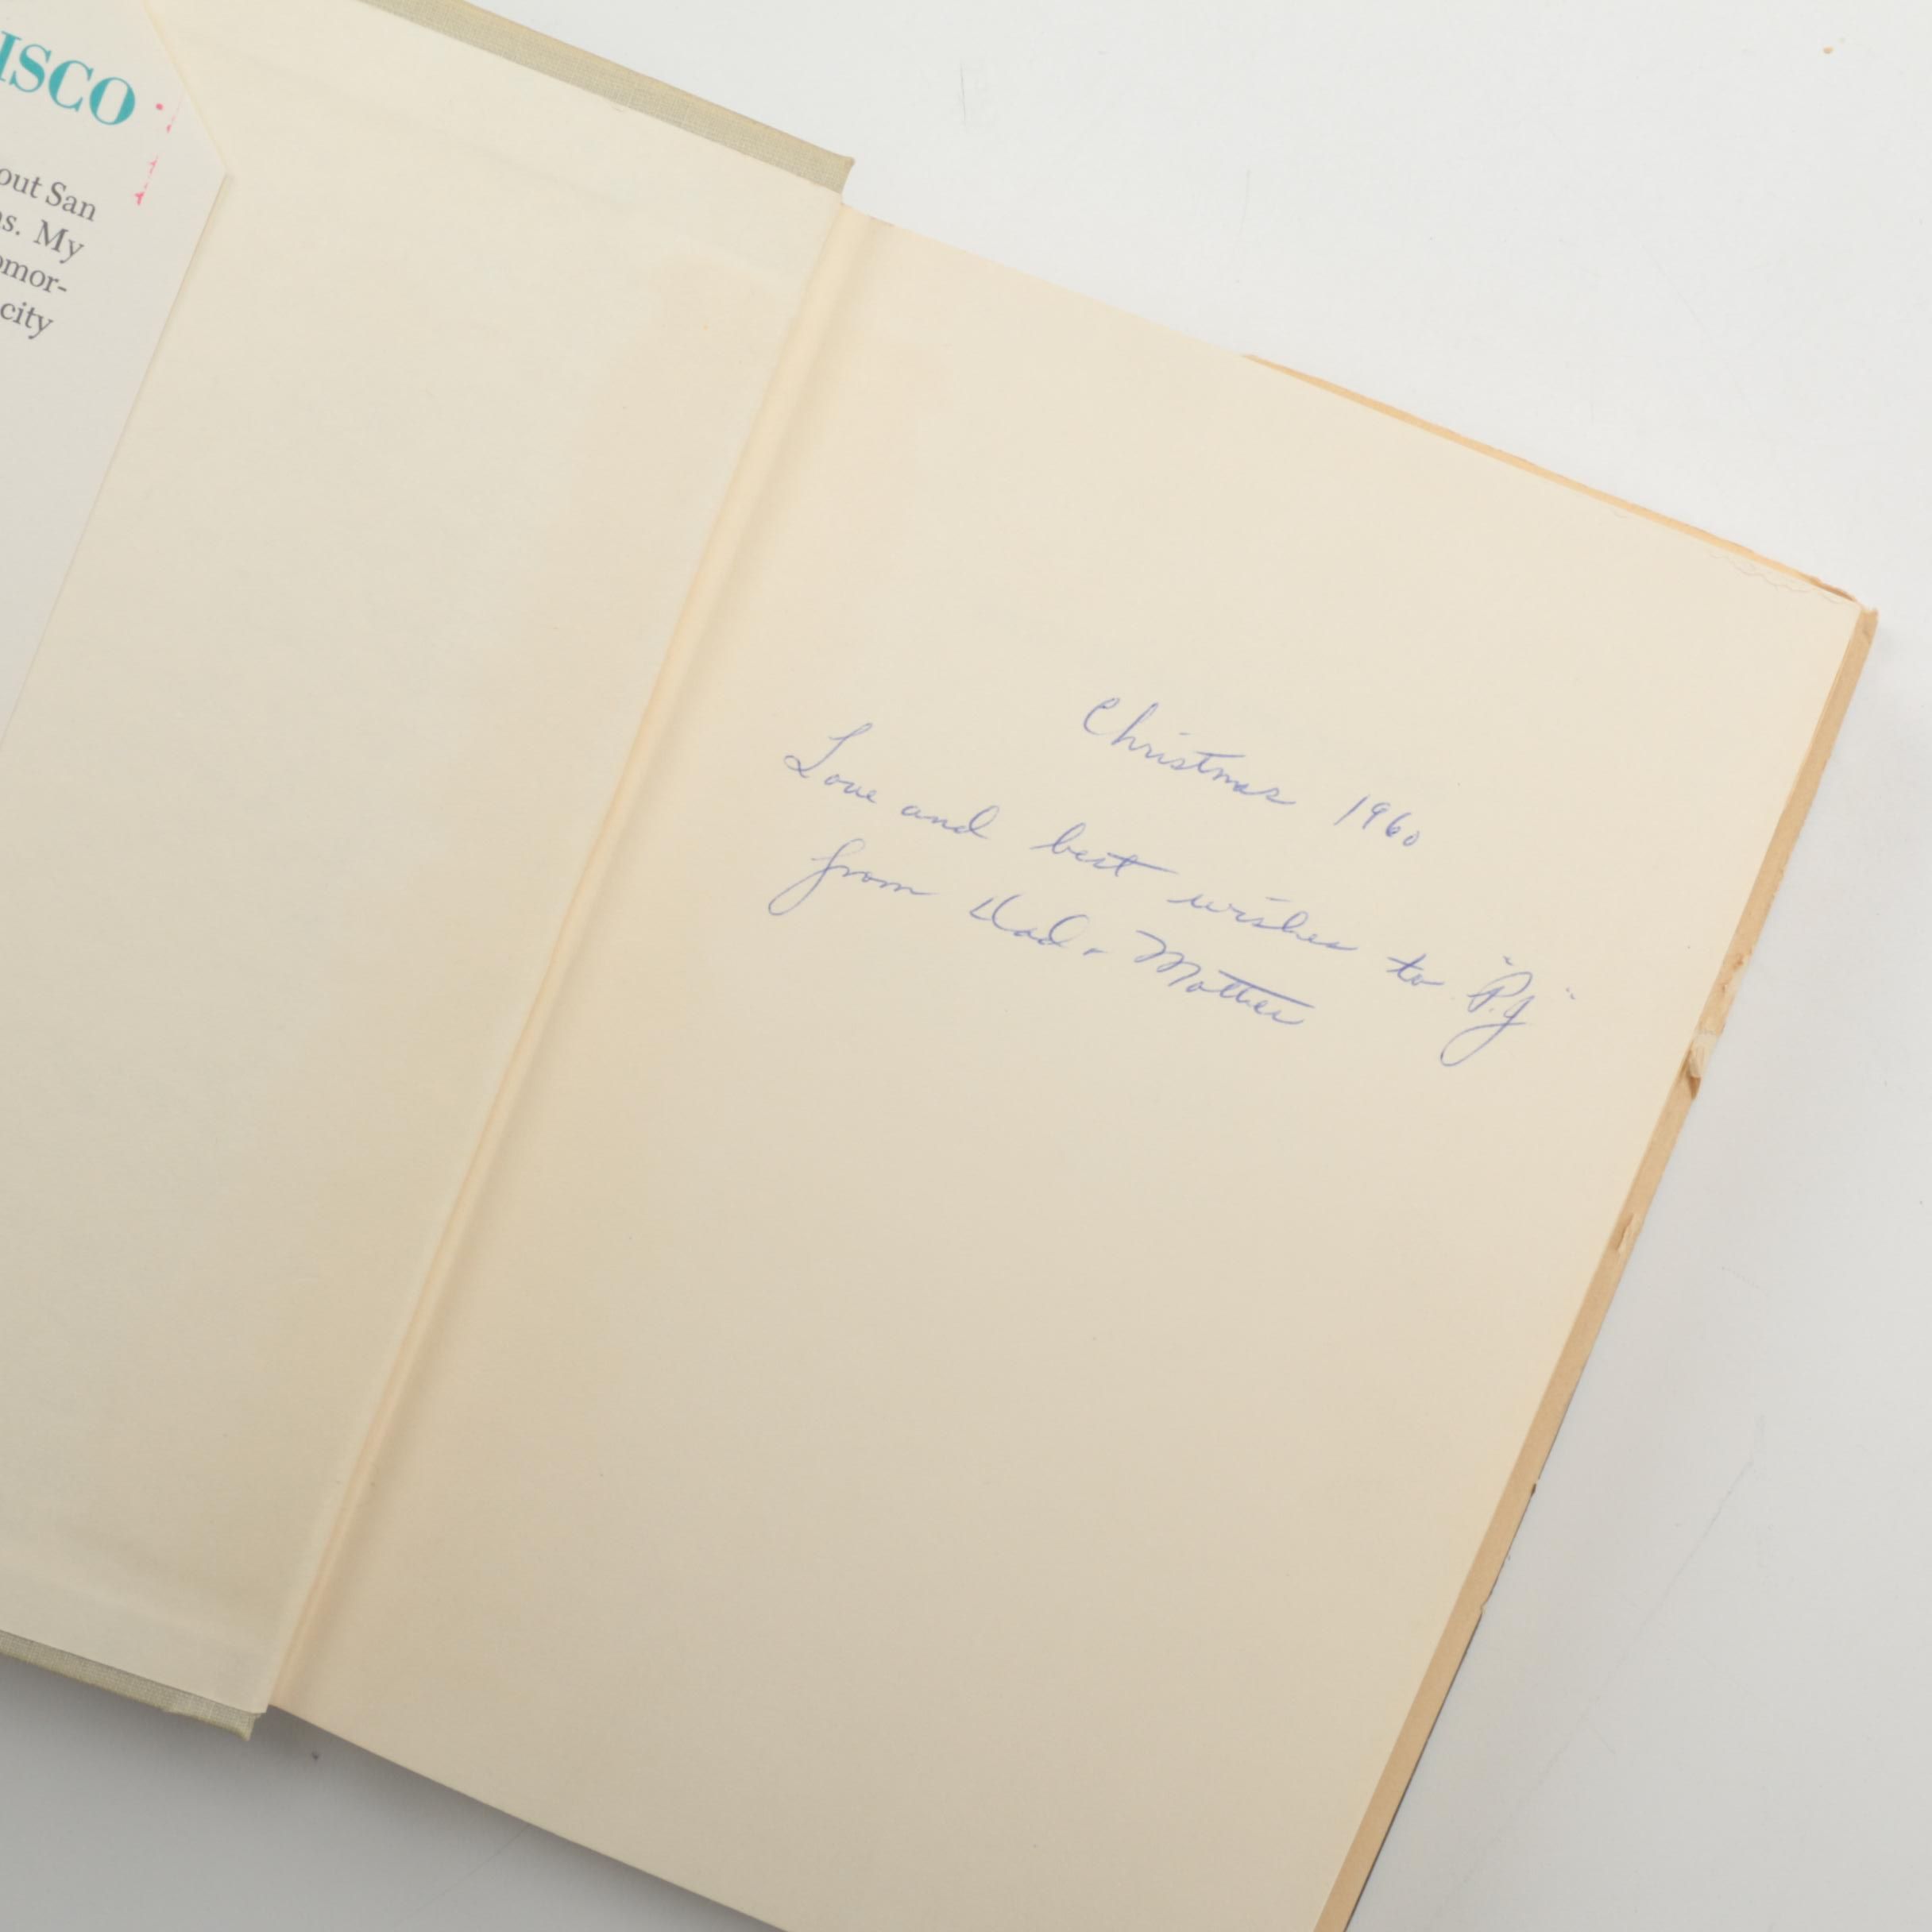 ISCO
out San
s. My
omor-
city
Christmas 1960
Love and best wishes to "P.J"
from Dad & Mother